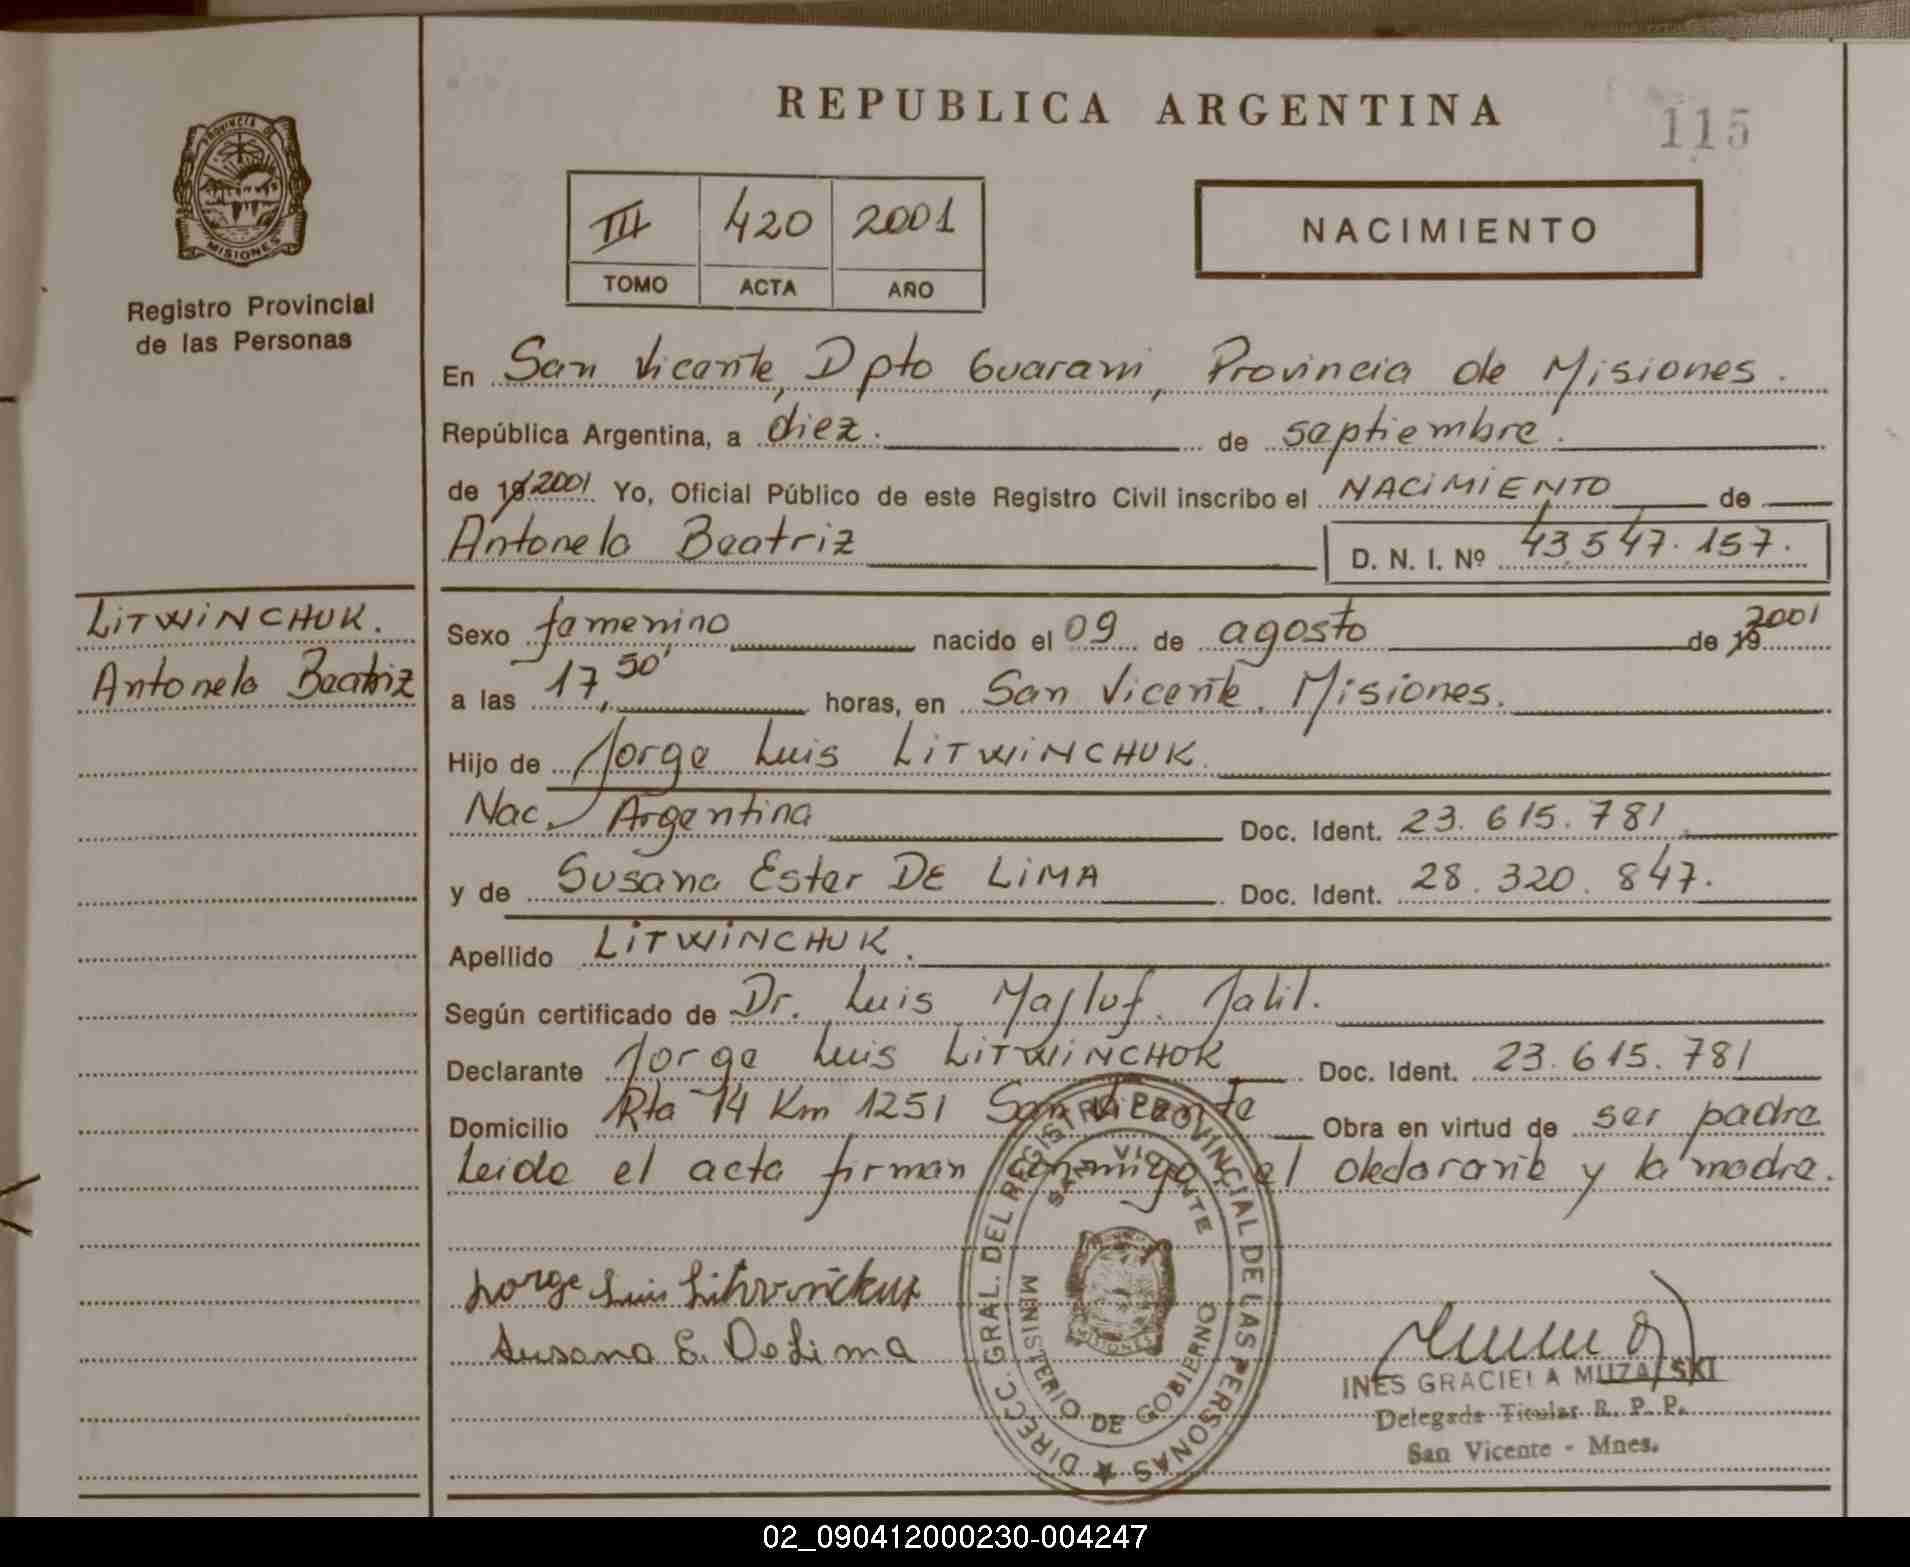 REPUBLICA ARGENTINA
115
PROVINCIA DE
MISIONES
Registro Provincial
de las Personas
III 420 2001
TOMO ACTA AÑO
NACIMIENTO
En San Vicente, Dpto Guarani, Provincia de Misiones.
República Argentina, a diez. de septiembre.
de 19 2001 Yo, Oficial Público de este Registro Civil inscribo el NACIMIENTO de
Antonela Beatriz D. N. I. Nº 43.547.157.
LITWINCHUK.
Antonela Beatriz
Sexo femenino nacido el 09 de agosto de 19 2001
a las 17,50' horas, en San Vicente. Misiones.
Hijo de Jorge Luis LITWINCHUK
Nac. Argentina Doc. Ident. 23.615.781
y de Susana Ester DE LIMA Doc. Ident. 28.320.847.
Apellido LITWINCHUK.
Según certificado de Dr. Luis Majluf Jalil.
Declarante Jorge Luis LITWINCHUK Doc. Ident. 23.615.781
Domicilio Rta 14 Km 1251 San Vicente Obra en virtud de ser padre
Leida el acta firman conmigo el declarante y la madre.
DIRECC. GRAL. DEL REGISTRO PROVINCIAL DE LAS PERSONAS
SAN VICENTE
MINISTERIO DE GOBIERNO
MISIONES
Jorge Luis Litwinchuk
Susana E. De Lima
INES GRACIELA MUZALSKI
Delegada Titular R. P. P.
San Vicente - Mnes.
02_090412000230-004247